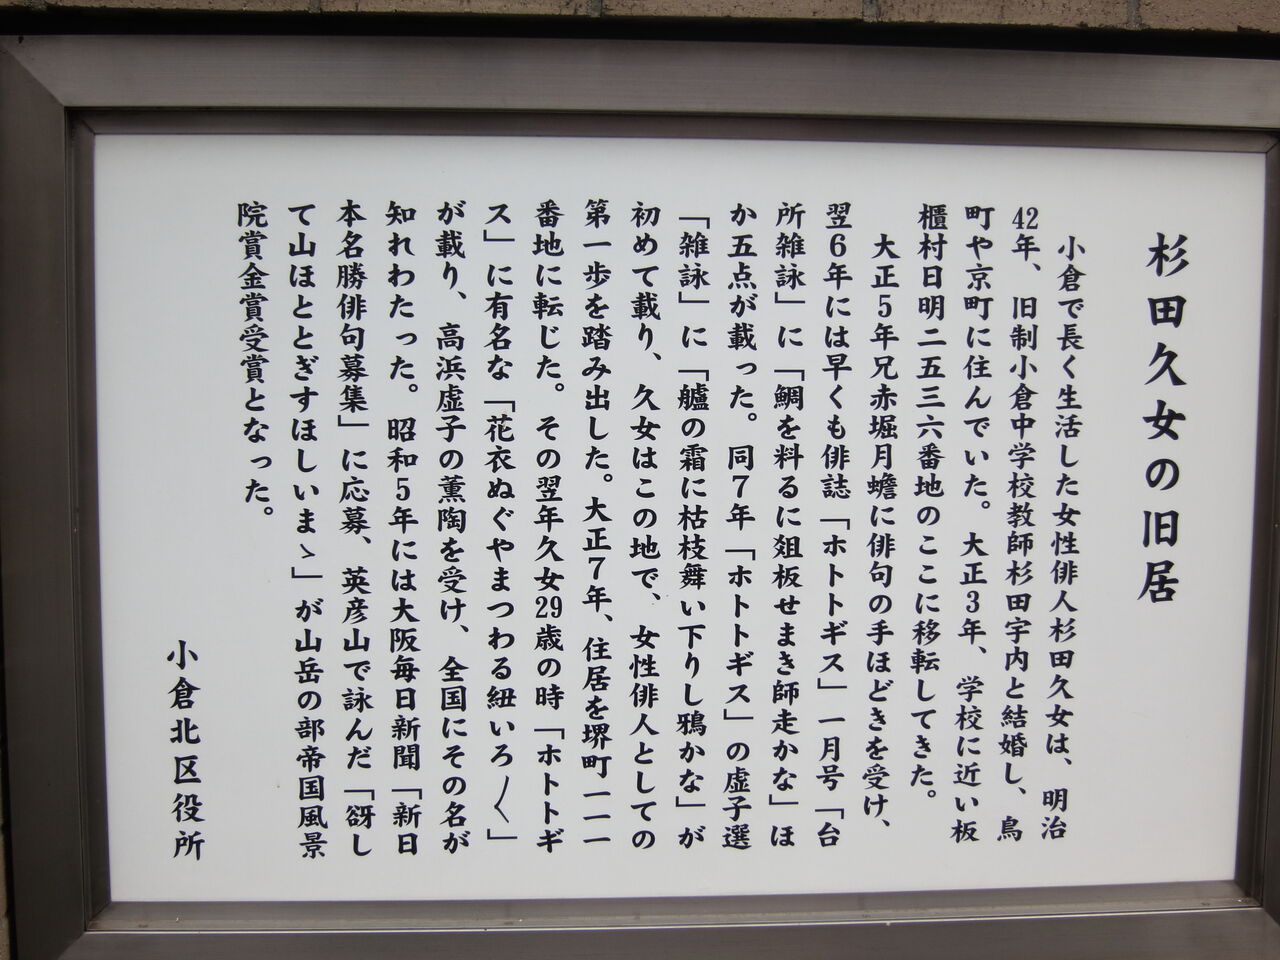 杉田久女の旧居
小倉で長く生活した女性俳人杉田久女は、明治
42年、旧制小倉中学校教師杉田宇内と結婚し、鳥
町や京町に住んでいた。大正3年、学校に近い板
櫃村日明二五三六番地のここに移転してきた。
大正5年兄赤堀月蟾に俳句の手ほどきを受け、
翌6年には早くも俳誌「ホトトギス」一月号「台
所雑詠」に「鯛を料るに俎板せまき師走かな」ほ
か五点が載った。同7年「ホトトギス」の虚子選
「雑詠」に「艫の霜に枯枝舞い下りし鴉かな」が
初めて載り、久女はこの地で、女性俳人としての
第一歩を踏み出した。大正7年、住居を堺町一一一
番地に転じた。その翌年久女29歳の時「ホトトギ
ス」に有名な「花衣ぬぐやまつわる紐いろ〱」
が載り、高浜虚子の薫陶を受け、全国にその名が
知れわたった。昭和5年には大阪毎日新聞「新日
本名勝俳句募集」に応募、英彦山で詠んだ「谺し
て山ほととぎすほしいまゝ」が山岳の部帝国風景
院賞金賞受賞となった。
小倉北区役所